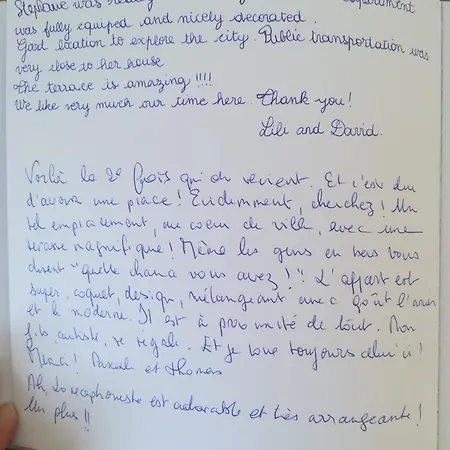 Stephane was
was fully equiped and nicely decorated.
Good location to explore the city. Public transportation was
very close to her house
The terrace is amazing !!!!
We like very much our time here. Thank you!
Lili and David.
Voilà la 2e fois qu'on revient. Et c'est dur
d'avoir une place! Evidemment, cherchez! Un
tel emplacement, au coeur de ville, avec une
terasse magnifique! Même les gens en bas vous
disent "quelle chance vous avez!"! L'appart est
super, coquet, design, mélangeant avec goût l'ancien
et le moderne. Il est à proximité de tout. Mon
fils, autiste, se régale. Et je loue toujours celui ci!
Merci! Pascale et Thomas
Ah, la réceptionniste est adorable et très arrangeante!
Un plus!!